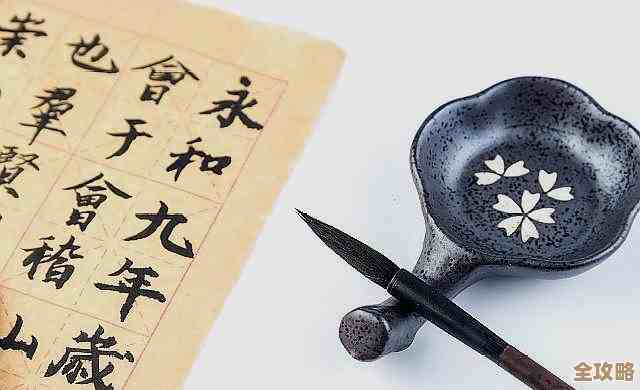 永和九年歲
會于會稽山
也羣賢
崇
全攻略